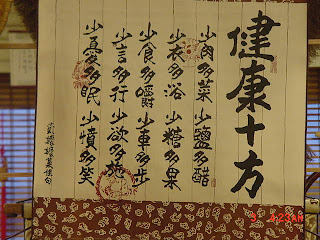 健康十方
少肉多菜 少鹽多醋
少衣多浴 少糖多果
少食多嚼 少車多步
少言多行 少欲多施
少憂多眠 少憤多笑